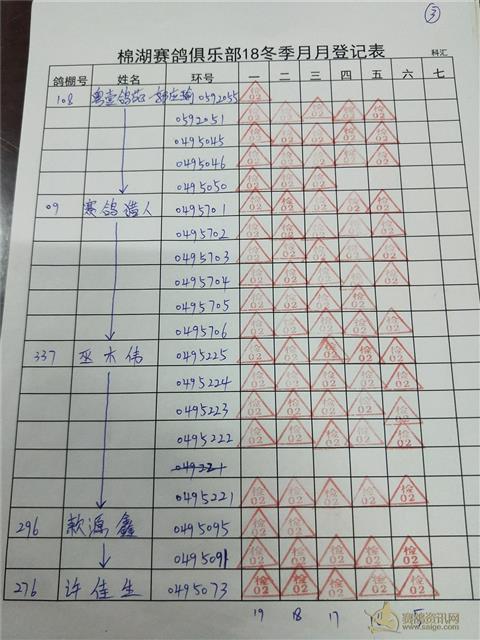 ③
棉湖赛鸽俱乐部18冬季月月登记表
科汇
鸽棚号 姓名 环号 一 二 三 四 五 六 七
108 郭庄瑜 0592055 检02
0592051 检02 检02 检02 检02 检02
0495045 检02 检02 检02 检02 检02
0495046 检02 检02 检02 检02 检02
0495050 检02 检02 检02
09 赛鸽造人 0495701 检02 检02 检02 检02 检02
0495702 检02 检02 检02 检02 检02
0495703 检02 检02 检02 检02 检02
0495704 检02 检02 检02 检02 检02
0495705 检02 检02 检02 检02
0495706 检02 检02 检02 检02 检02
337 巫木伟 0495225 检02 检02 检02 检02 检02
0495224 检02 检02 检02 检02 检02
0495223 检02 检02 检02 检02 检02
0495222 检02 检02 检02 检02 检02
0495221 检02 检02 检02 检02 检02
296 源鑫 0495095 检02 检02
0495091 检02 检02 检02 检02 检02
276 许佳生 0495073 检02 检02 检02 检02 检02
19 18 17
赛鸽资讯网
www.saige.com